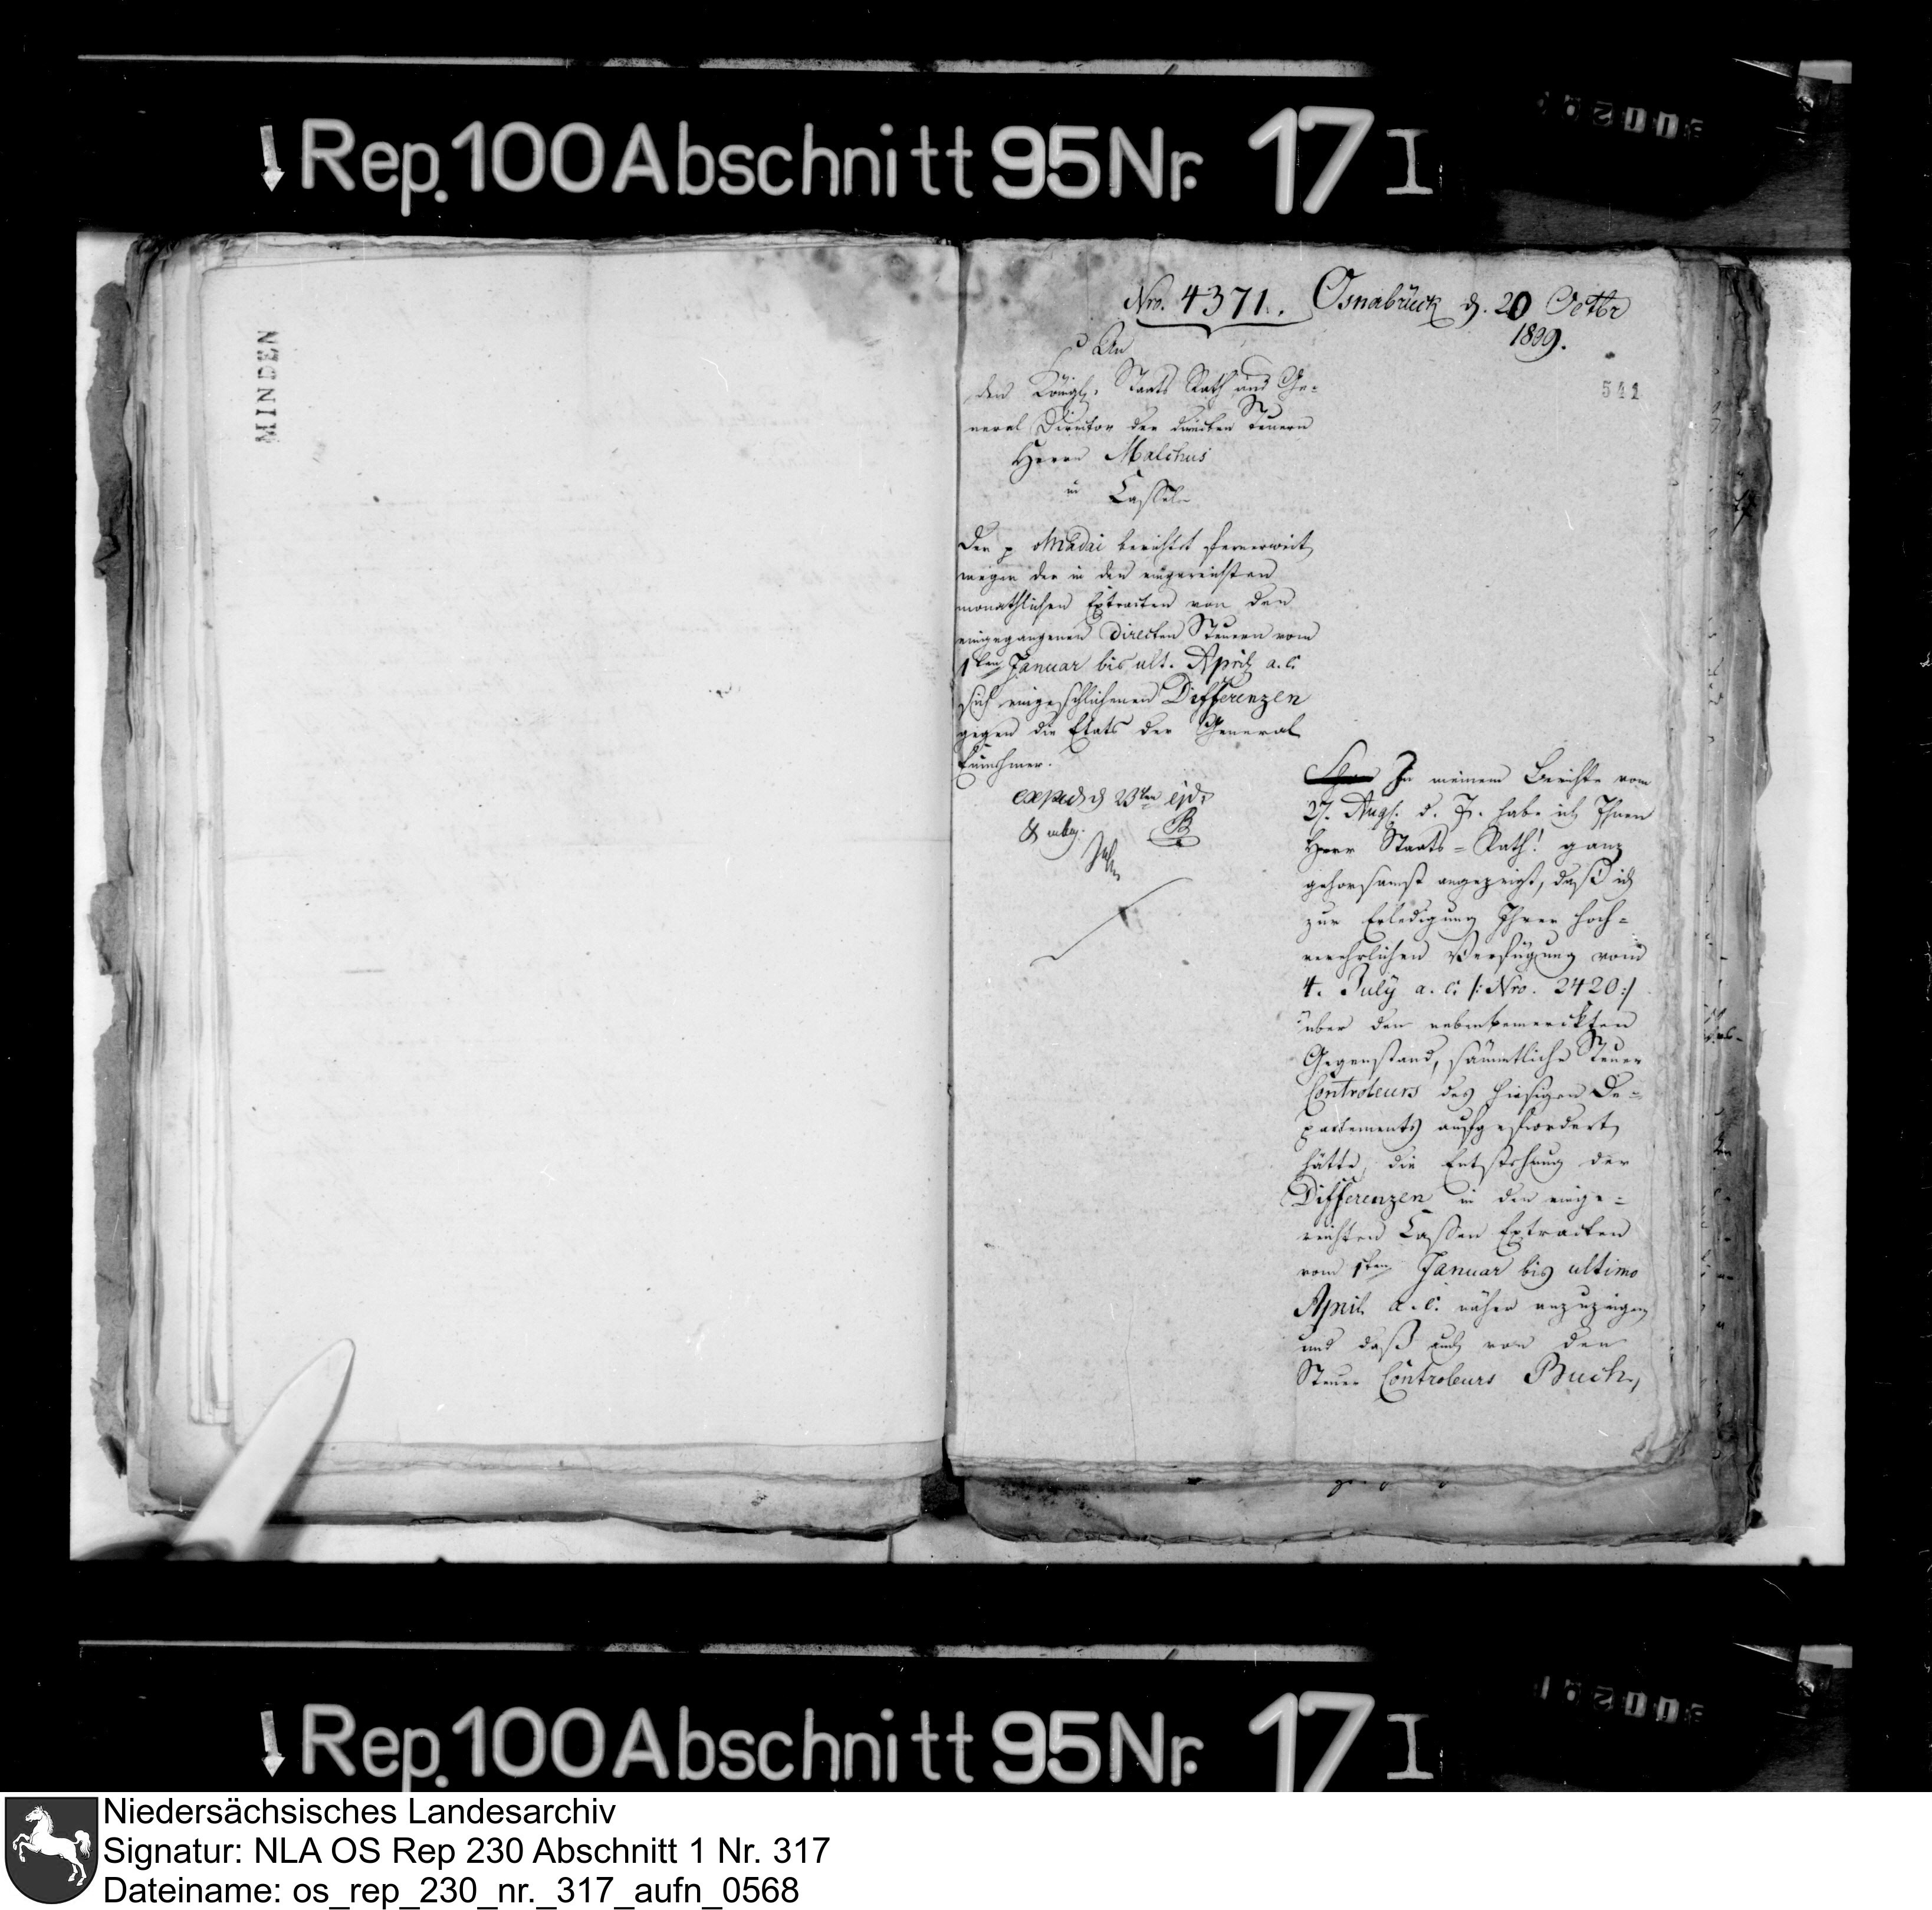 Rep. 100 Abschnitt 95 Nr. 17 I
MINDEN
Nro. 4371. Osnabrück d. 20 Octbr
1809.
541
An
den Königl. Staats Rath und Ge=
neral Director der directen Steuern
Herrn Malchus
in Cassel
Der p Madai berichtet fernerweit
wegen der in den eingereichten
monathlichen Extracten von den
eingegangenen directen Steuern vom
1ten Januar bis ult. April a. c.
sich eingeschlichenen Differenzen
gegen die Etats der General
Einnehmer.
exped d 23ten ejd.
In meinem Berichte vom
27. Aug. d. J. habe ich Ihnen
Herr Staats=Rath! ganz
gehorsamst angezeigt, daß ich
zur Erledigung Ihrer hoch=
verehrlichen Verfügung vom
4. July a. c. /: Nro. 2420:/
über den nebenbemerckten
Gegenstand, sämmtliche Steuer
Controleurs des hiesigen De=
partements aufgefordert
hätte, die Entstehung der
Differenzen in den einge=
reichten Cassen Extracten
vom 1ten Januar bis ultimo
April a. c. näher anzuzeigen
und daß auch von den
Steuer Controleurs Buch,
Rep. 100 Abschnitt 95 Nr. 17 I
Niedersächsisches Landesarchiv
Signatur: NLA OS Rep 230 Abschnitt 1 Nr. 317
Dateiname: os_rep_230_nr._317_aufn_0568